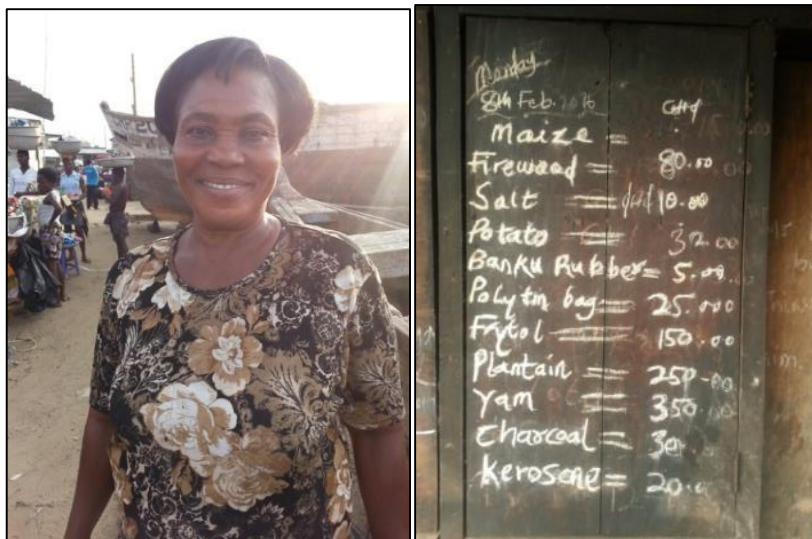 Monday
8th Feb. 2016 GH¢
Maize =
Firewood = 80.00
Salt = GH¢ 10.00
Potato = 32.00
Banku Rubber = 5.00
Polytin bag = 25.000
Frytol = 150.00
Plantain = 250.00
Yam = 350.00
Charcoal = 30
Kerosene = 20.0